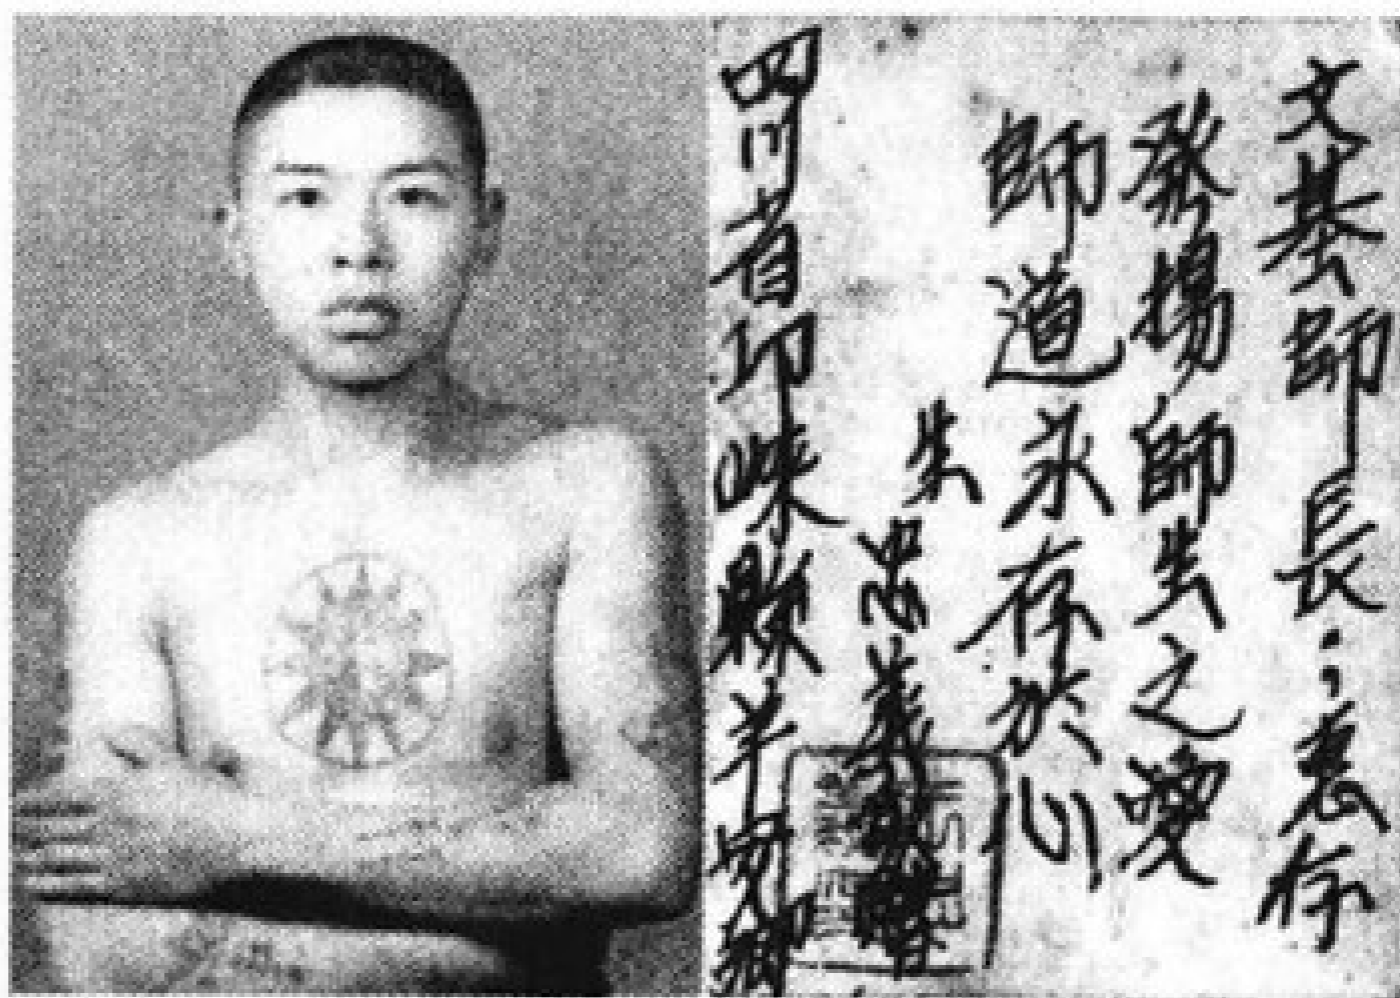 文基師長：惠存
發揚師生之愛
師道永存於心
生
忠義敬贈
四川省邛崍縣羊安鄉